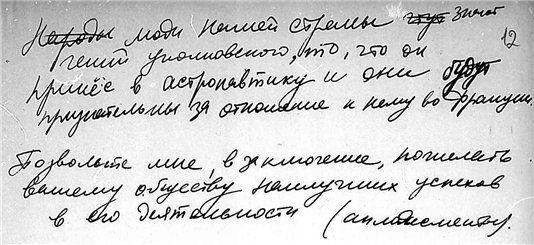 Народы люди нашей страны чтут знают 12
гений Циолковского, то, что он
принёс в астронавтику и они будут
признательны за отношение к нему во Франции.
Позвольте мне, в заключение, пожелать
вашему обществу наилучших успехов
в его деятельности (аплодисменты).